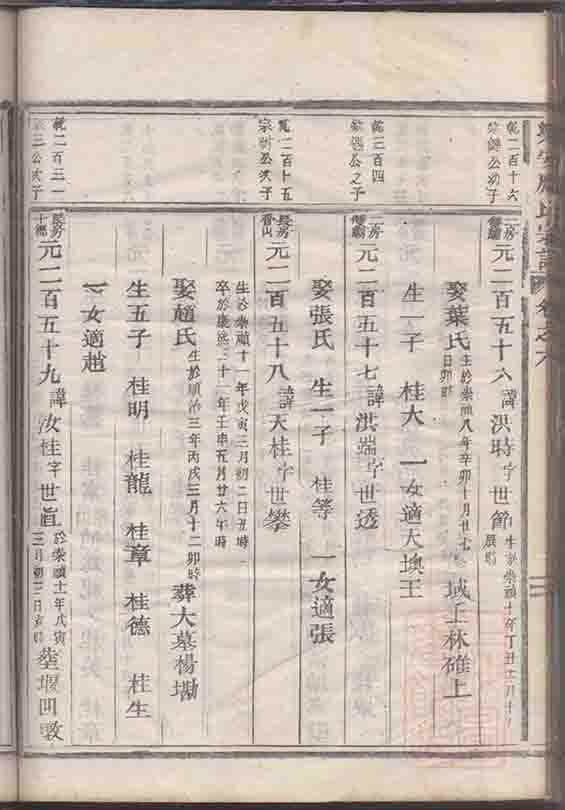 乾二百十六
公幼子
二房
元二百五十六諱洪時字世節
生於崇禎十年丁丑二月十
辰時
娶葉氏
生於崇禎八年辛卯十月廿七
日卯時
城王林碓上
生一子 桂大 一女適大墺王
乾二百四
公之子
二房
元二百五十七諱洪端字世透
娶張氏 生一子 桂等 一女適張
乾二百十五
宗 公次子
長房
香山
元二百五十八諱天桂字世攀
生於崇禎十一年戊寅三月初二日丑時
卒於康熙三十一年壬申五月廿六午時
娶趙氏
生於順治三年丙戌三月十二卯時
葬大墓楊墈
生五子 桂明 桂龍 桂章 桂德 桂生
一女適趙
乾二百三一
三公次子
長房
十
元二百五十九諱汝桂字世眞
於崇禎十一年戊寅
三月初三日亥時
塟堰凹墩
氏宗譜 卷之六